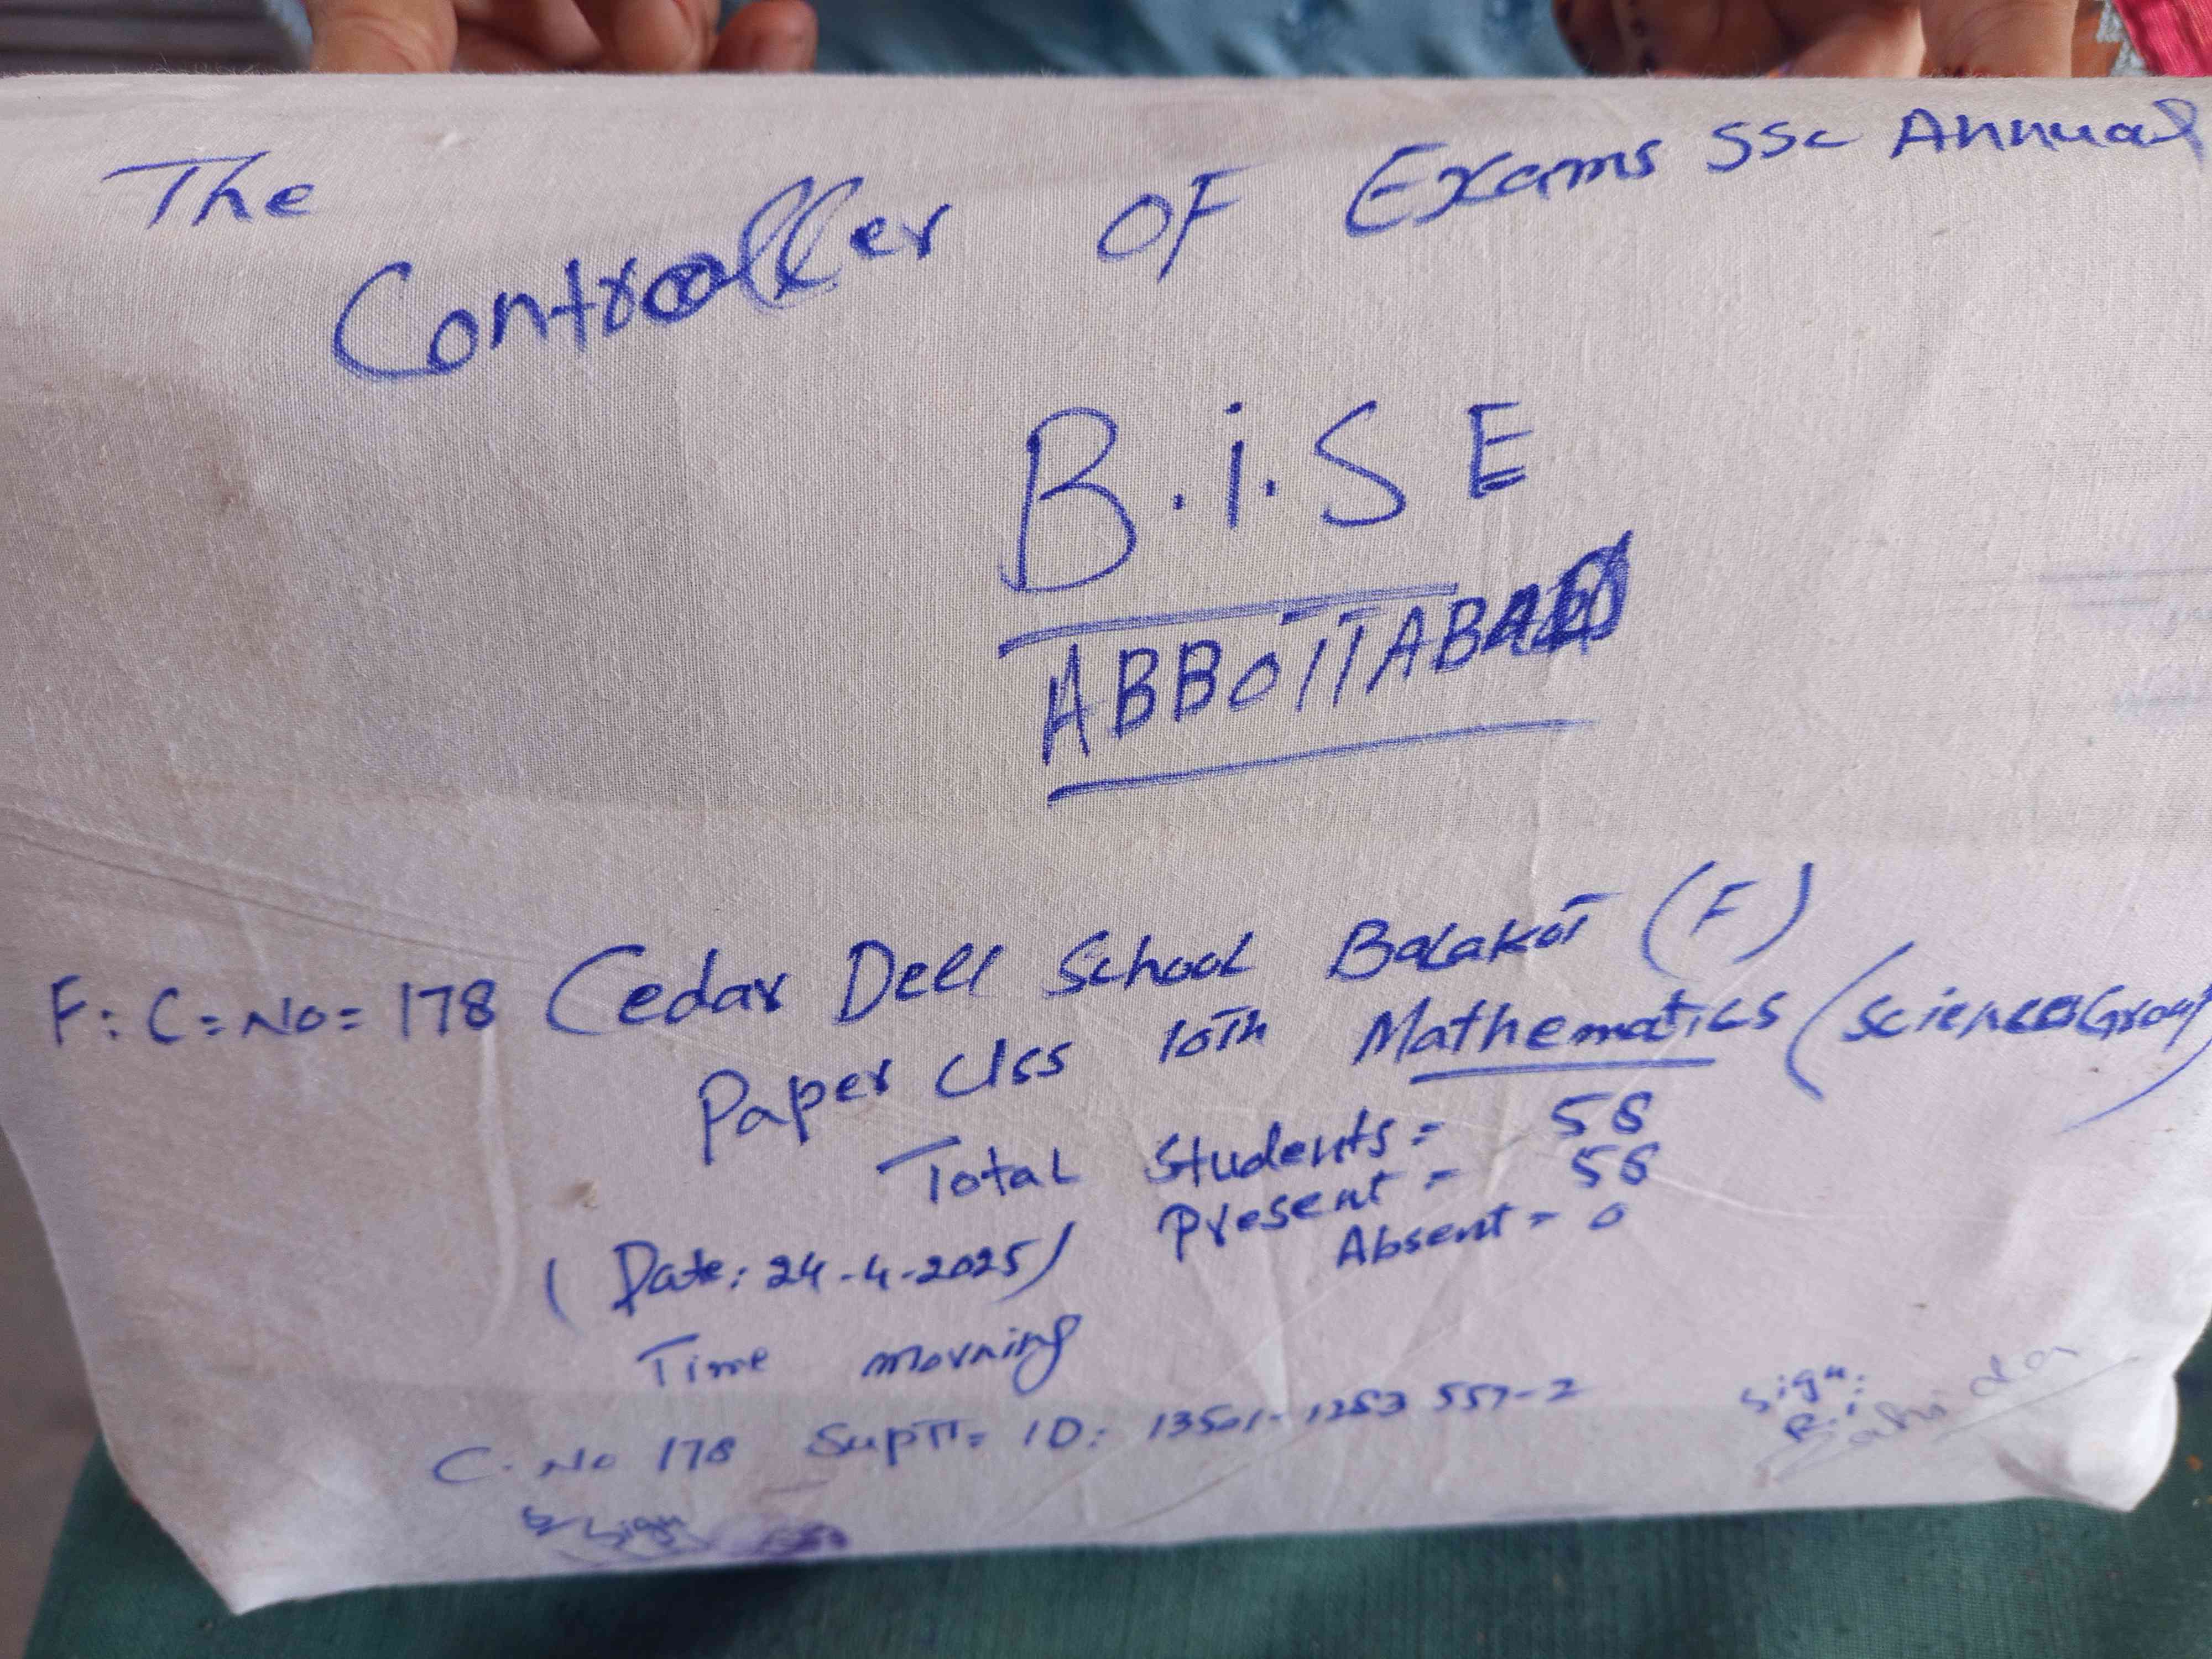 The
Controller OF Exams SSC Annual
B.i.S E
ABBOTTABAD
F: C=No= 178 Cedar Dell School Balakot (F)
Paper Clss 10th Mathematics (Science Group)
Total Students = 58
Present = 58
Absent = 0
(Date: 24-4-2025)
Time morning
C. No 178 Suptt= ID: 13501-1283557-2
Sign:
Sign